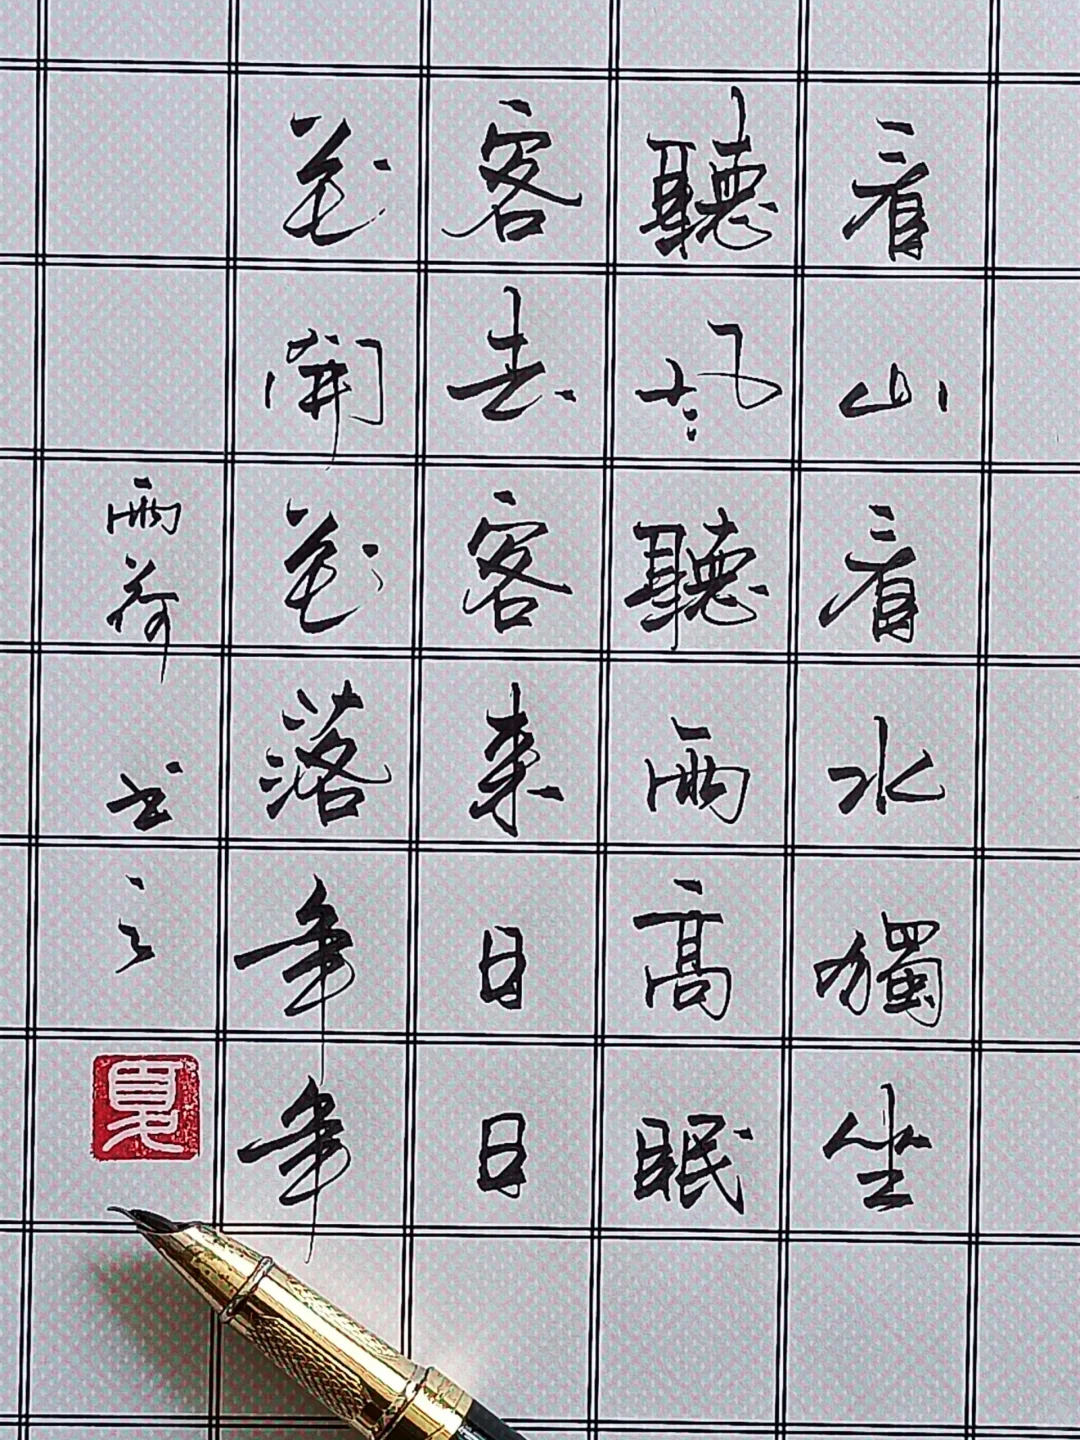 看山看水獨坐
聽風聽雨高眠
客去客來日日
花開花落年年
雨荷書之
夏